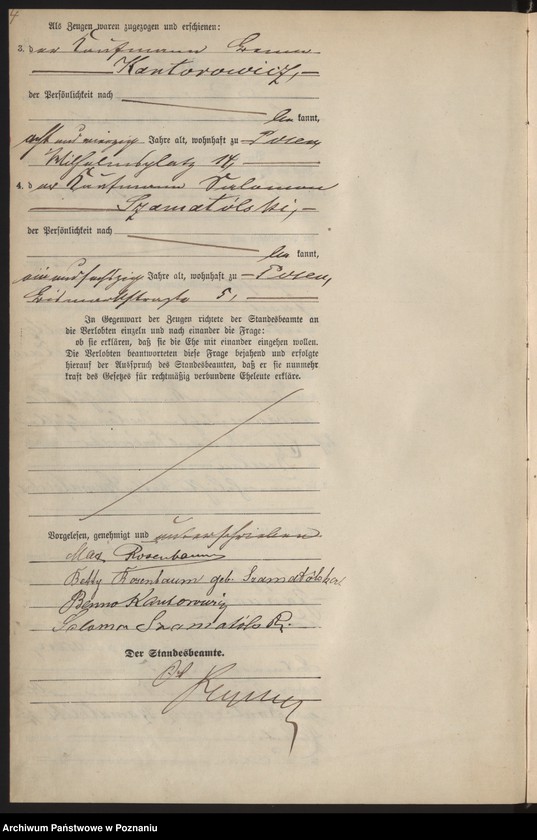 4
Als Zeugen waren zugezogen und erschienen:
3. der Kaufmann Benno
Kantorowicz,
der Persönlichkeit nach
bekannt,
acht und vierzig Jahre alt, wohnhaft zu Posen,
Wilhelmsplatz 14,
4. der Kaufmann Salomon
Szamatólski,
der Persönlichkeit nach
bekannt,
ein und sechzig Jahre alt, wohnhaft zu Posen,
Bismarckstraße 5,
In Gegenwart der Zeugen richtete der Standesbeamte an
die Verlobten einzeln und nach einander die Frage:
ob sie erklären, daß sie die Ehe mit einander eingehen wollen.
Die Verlobten beantworteten diese Frage bejahend und erfolgte
hierauf der Ausspruch des Standesbeamten, daß er sie nunmehr
kraft des Gesetzes für rechtmäßig verbundene Eheleute erkläre.
Vorgelesen, genehmigt und unterschrieben
Max Rosenbaum
Betty Rosenbaum geb. Szamatólska
Benno Kantorowicz
Salomon Szamatólski.
Der Standesbeamte.
Archiwum Państwowe w Poznaniu